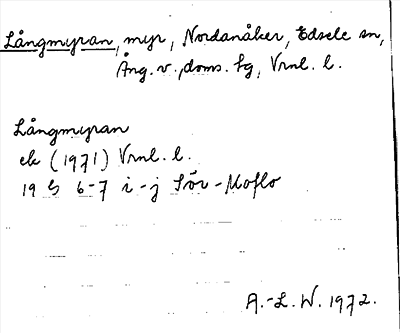 Långmyran, myr, Nordanåker, Edsele sn,
Ång. v. doms. fg, Vrnl. l.
Långmyran
ek (1971) Vrnl. l.
19 G 6-7 i-j Sör-Moflo
A.-L. W. 1972.